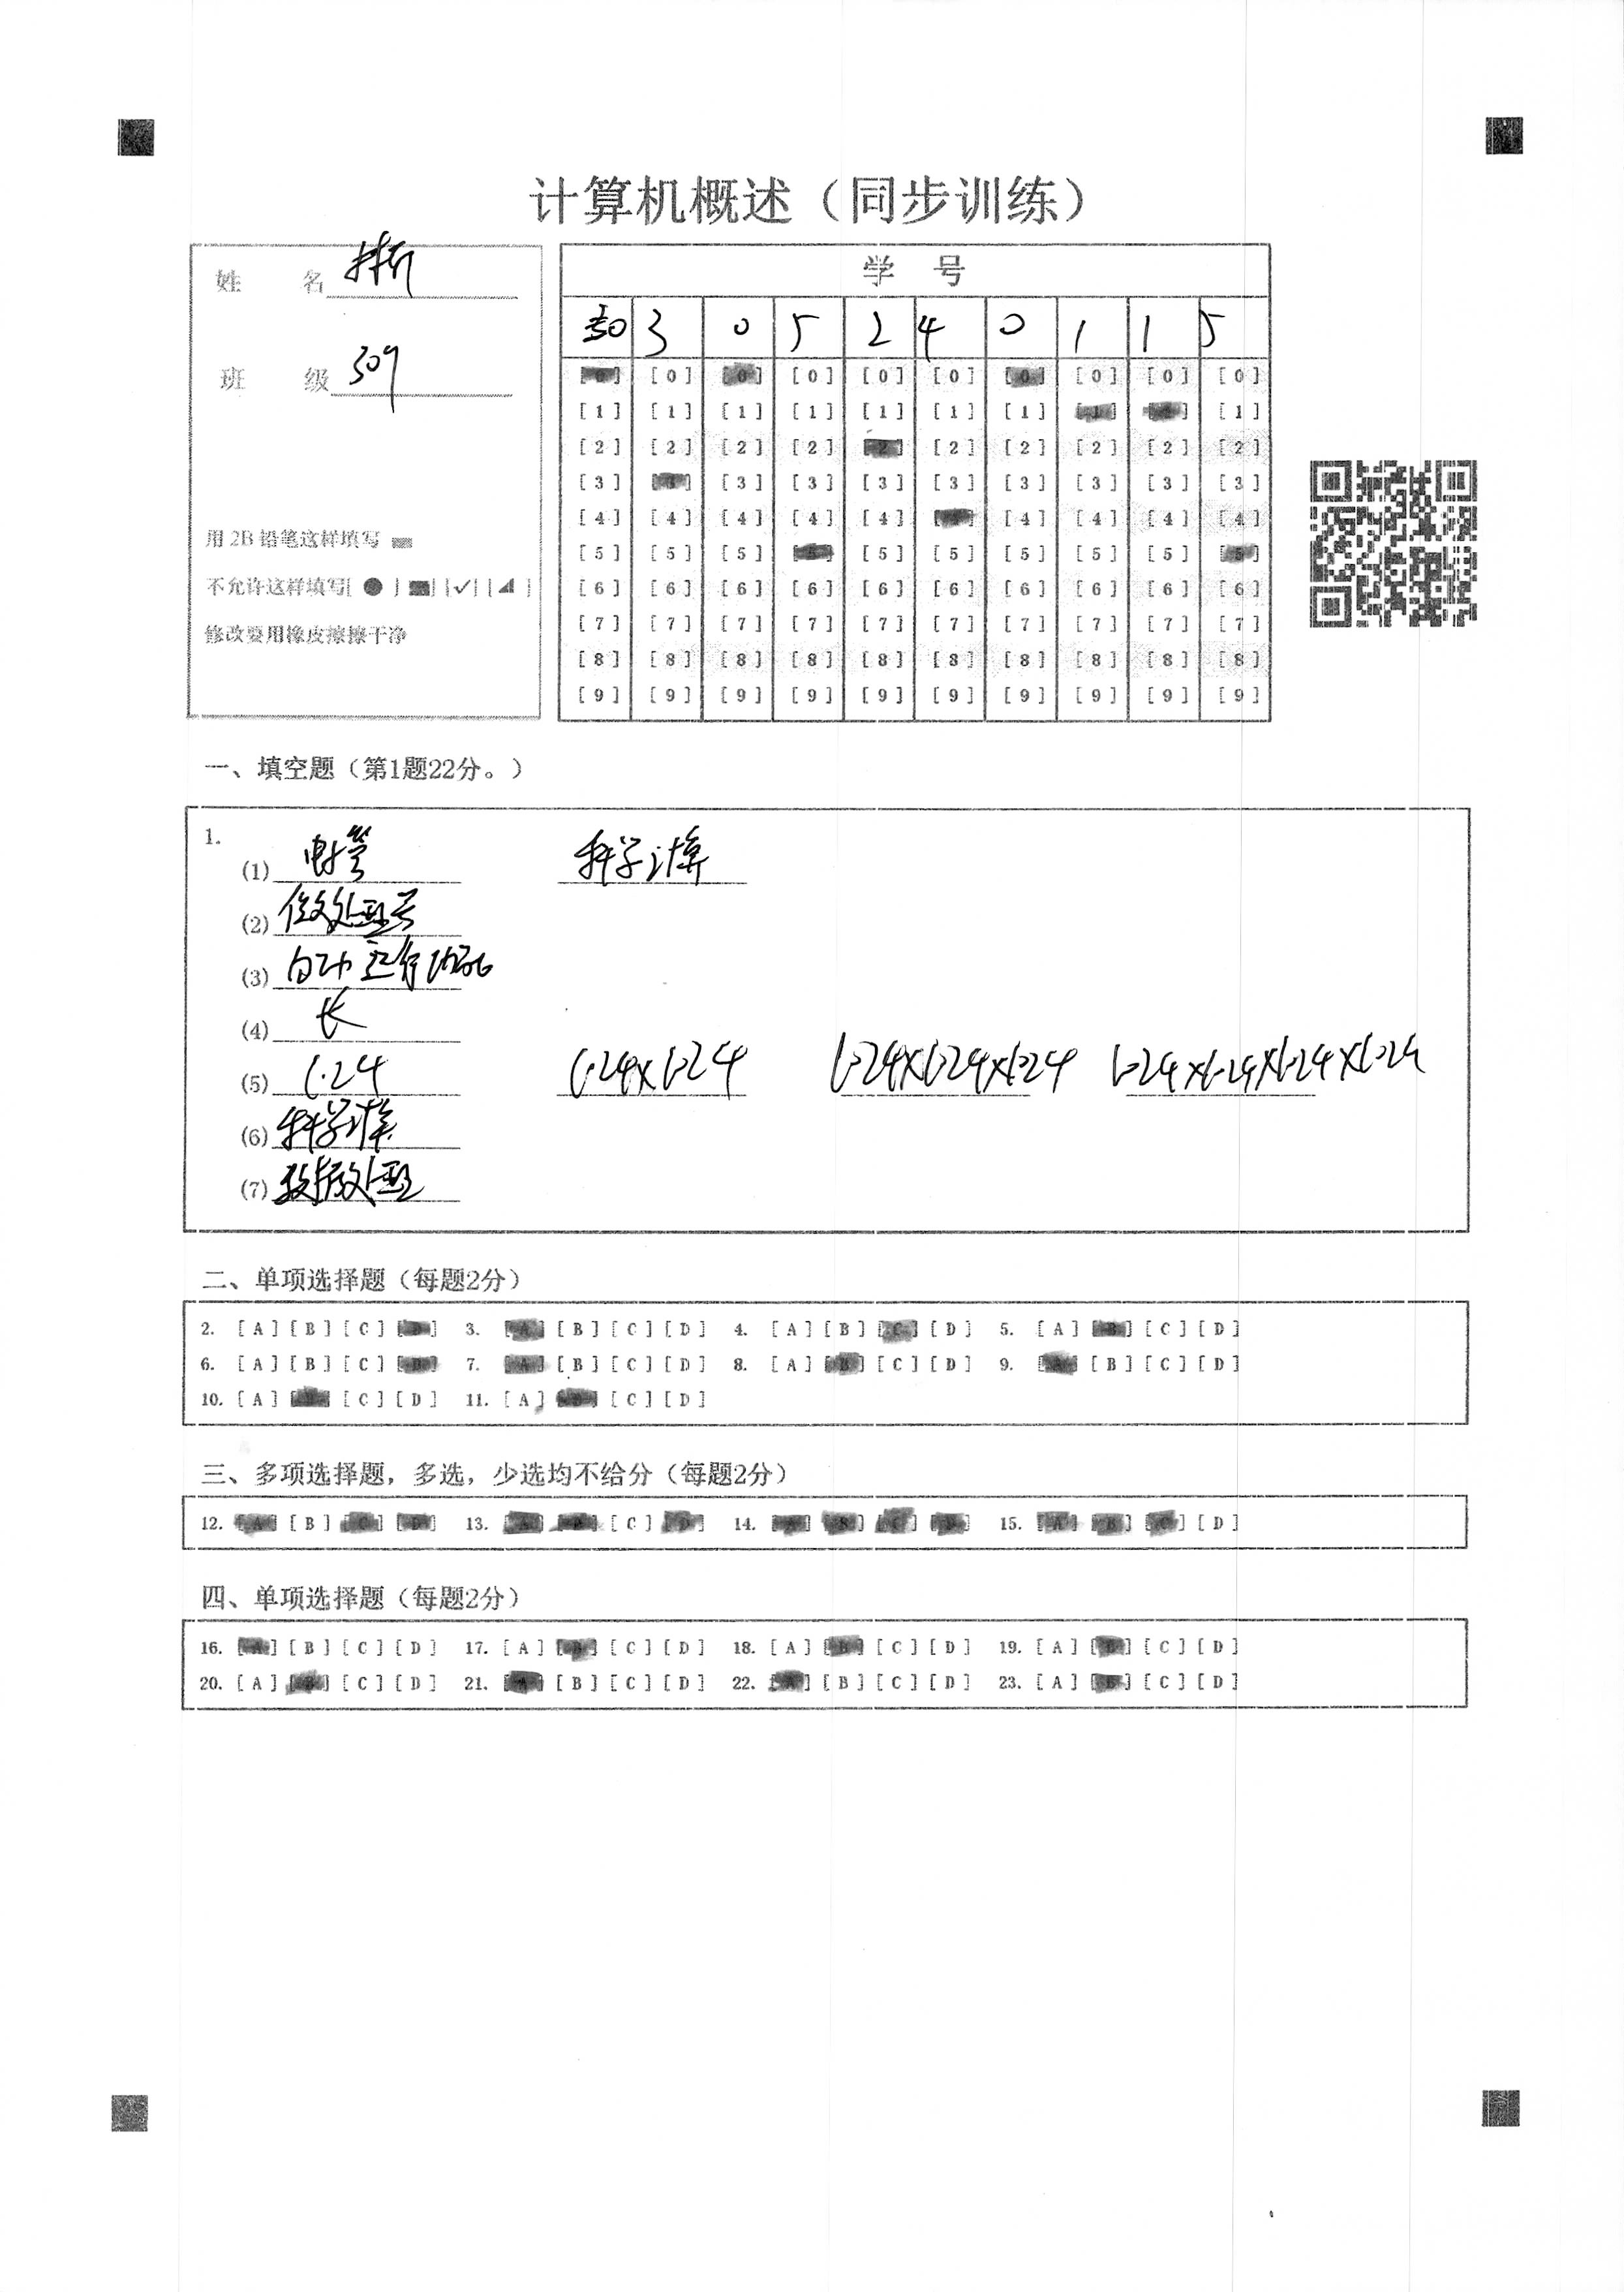 计算机概述（同步训练）
姓 名
班 级 309
学 号
0 3 0 5 2 4 0 1 1 5
[0] [0] [0] [0] [0] [0] [0] [0] [0] [0]
[1] [1] [1] [1] [1] [1] [1] [1] [1] [1]
[2] [2] [2] [2] [2] [2] [2] [2] [2] [2]
[3] [3] [3] [3] [3] [3] [3] [3] [3] [3]
[4] [4] [4] [4] [4] [4] [4] [4] [4] [4]
[5] [5] [5] [5] [5] [5] [5] [5] [5] [5]
[6] [6] [6] [6] [6] [6] [6] [6] [6] [6]
[7] [7] [7] [7] [7] [7] [7] [7] [7] [7]
[8] [8] [8] [8] [8] [8] [8] [8] [8] [8]
[9] [9] [9] [9] [9] [9] [9] [9] [9] [9]
用2B铅笔这样填写
不允许这样填写
修改要用橡皮擦擦干净
一、填空题（第1题22分。）
1.
(1) 电子管 科学计算
(2) 微处理器
(3) 自动运行
(4) 长
(5) 1024 1024×1024 1024×1024×1024 1024×1024×1024×1024
(6) 科学计算
(7) 数据处理
二、单项选择题（每题2分）
2. [A] [B] [C] [D] 3. [A] [B] [C] [D] 4. [A] [B] [C] [D] 5. [A] [B] [C] [D]
6. [A] [B] [C] [D] 7. [A] [B] [C] [D] 8. [A] [B] [C] [D] 9. [A] [B] [C] [D]
10. [A] [B] [C] [D] 11. [A] [B] [C] [D]
三、多项选择题，多选，少选均不给分（每题2分）
12. [A] [B] [C] [D] 13. [A] [B] [C] [D] 14. [A] [B] [C] [D] 15. [A] [B] [C] [D]
四、单项选择题（每题2分）
16. [A] [B] [C] [D] 17. [A] [B] [C] [D] 18. [A] [B] [C] [D] 19. [A] [B] [C] [D]
20. [A] [B] [C] [D] 21. [A] [B] [C] [D] 22. [A] [B] [C] [D] 23. [A] [B] [C] [D]